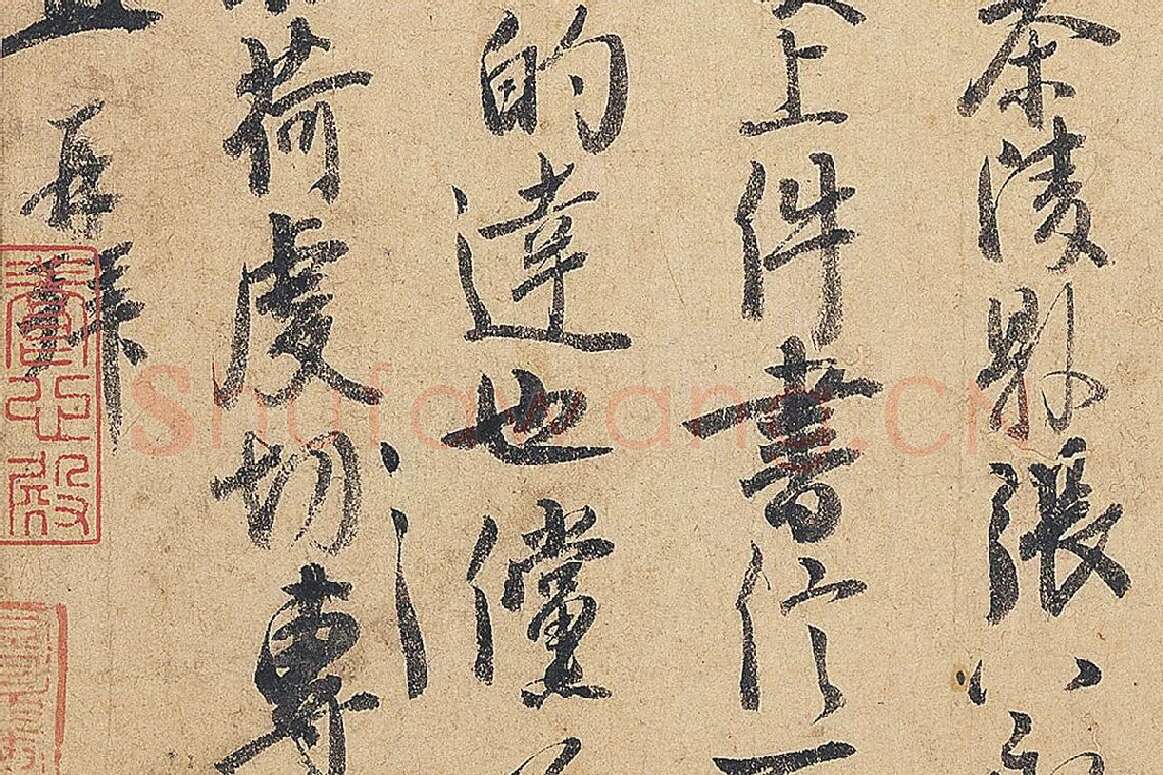 茶陵縣張八
上件書信一
的達也儻
荷虔切專
再拜
shufawang.cn